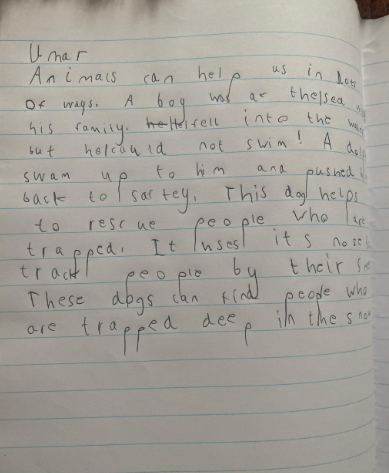 Umar
Animals can help us in lots
of ways. A boy was at thelsea
his family. he fell into the
but helcould not swim! A
swam up to him and pushed
back to saftey. This dog helps
to rescue people who are
trapped. It uses it s nose
track people by their
These dogs can find people who
are trapped deep in the